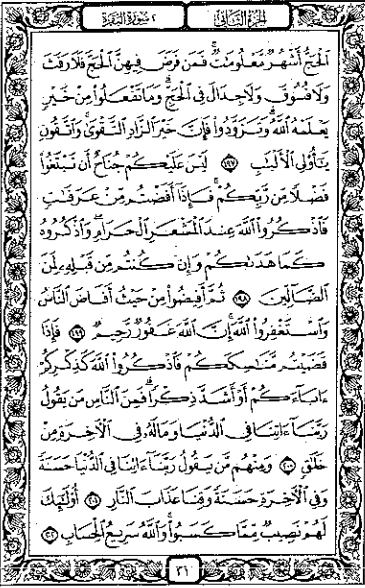 الجزء الثاني ٢ سورة البقرة
ٱلْحَجُّ أَشْهُرٌ مَّعْلُومَٰتٌ ۚ فَمَن فَرَضَ فِيهِنَّ ٱلْحَجَّ فَلَا رَفَثَ
وَلَا فُسُوقَ وَلَا جِدَالَ فِى ٱلْحَجِّ ۗ وَمَا تَفْعَلُوا۟ مِنْ خَيْرٍ
يَعْلَمْهُ ٱللَّهُ ۗ وَتَزَوَّدُوا۟ فَإِنَّ خَيْرَ ٱلزَّادِ ٱلتَّقْوَىٰ ۚ وَٱتَّقُونِ
يَٰٓأُو۟لِى ٱلْأَلْبَٰبِ ١٩٧ لَيْسَ عَلَيْكُمْ جُنَاحٌ أَن تَبْتَغُوا۟
فَضْلًا مِّن رَّبِّكُمْ ۚ فَإِذَآ أَفَضْتُم مِّنْ عَرَفَٰتٍ
فَٱذْكُرُوا۟ ٱللَّهَ عِندَ ٱلْمَشْعَرِ ٱلْحَرَامِ ۖ وَٱذْكُرُوهُ
كَمَا هَدَىٰكُمْ وَإِن كُنتُم مِّن قَبْلِهِۦ لَمِنَ
ٱلضَّآلِّينَ ١٩٨ ثُمَّ أَفِيضُوا۟ مِنْ حَيْثُ أَفَاضَ ٱلنَّاسُ
وَٱسْتَغْفِرُوا۟ ٱللَّهَ ۚ إِنَّ ٱللَّهَ غَفُورٌ رَّحِيمٌ ١٩٩ فَإِذَا
قَضَيْتُم مَّنَٰسِكَكُمْ فَٱذْكُرُوا۟ ٱللَّهَ كَذِكْرِكُمْ
ءَابَآءَكُمْ أَوْ أَشَدَّ ذِكْرًا ۗ فَمِنَ ٱلنَّاسِ مَن يَقُولُ
رَبَّنَآ ءَاتِنَا فِى ٱلدُّنْيَا وَمَا لَهُۥ فِى ٱلْءَاخِرَةِ مِنْ
خَلَٰقٍ ٢٠٠ وَمِنْهُم مَّن يَقُولُ رَبَّنَآ ءَاتِنَا فِى ٱلدُّنْيَا حَسَنَةً
وَفِى ٱلْءَاخِرَةِ حَسَنَةً وَقِنَا عَذَابَ ٱلنَّارِ ٢٠١ أُو۟لَٰٓئِكَ
لَهُمْ نَصِيبٌ مِّمَّا كَسَبُوا۟ ۚ وَٱللَّهُ سَرِيعُ ٱلْحِسَابِ ٢٠٢
٣١